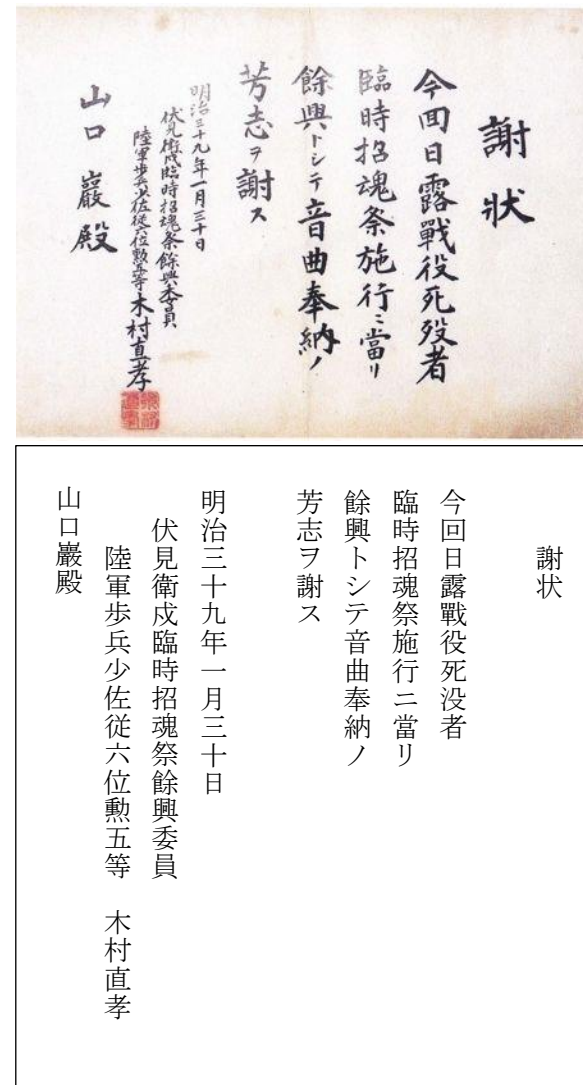 謝狀
今回日露戰役死歿者
臨時招魂祭施行ニ當リ
餘興トシテ音曲奉納ノ
芳志ヲ謝ス
明治三十九年一月三十日
伏見衛戍臨時招魂祭餘興委員
陸軍歩兵少佐従六位勲五等木村直孝
山口巖殿
謝状
今回日露戰役死没者
臨時招魂祭施行ニ當リ
餘興トシテ音曲奉納ノ
芳志ヲ謝ス
明治三十九年一月三十日
伏見衛戍臨時招魂祭餘興委員
陸軍歩兵少佐従六位勲五等　木村直孝
山口巖殿